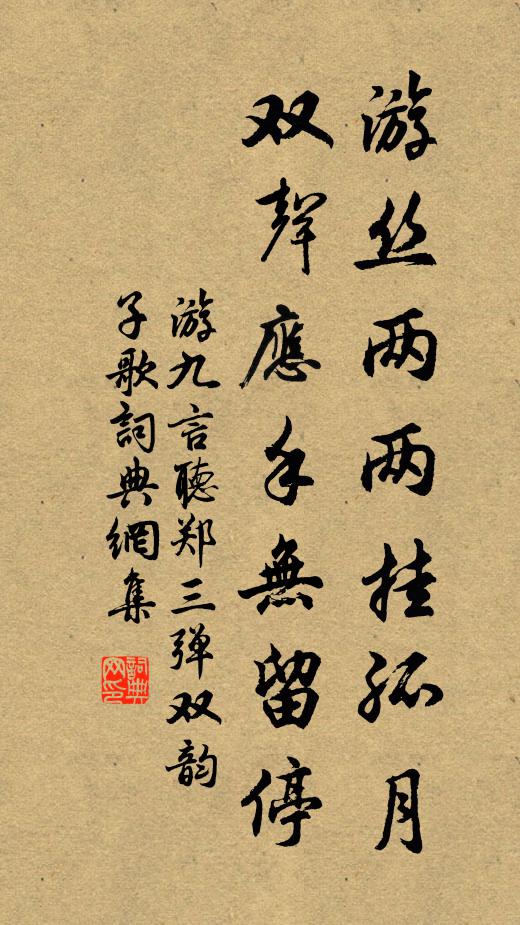 游丝两两挂孤月
双聲應手無留停
游九言聽郑三弹双韵
子歌詞典網集
詞典網印